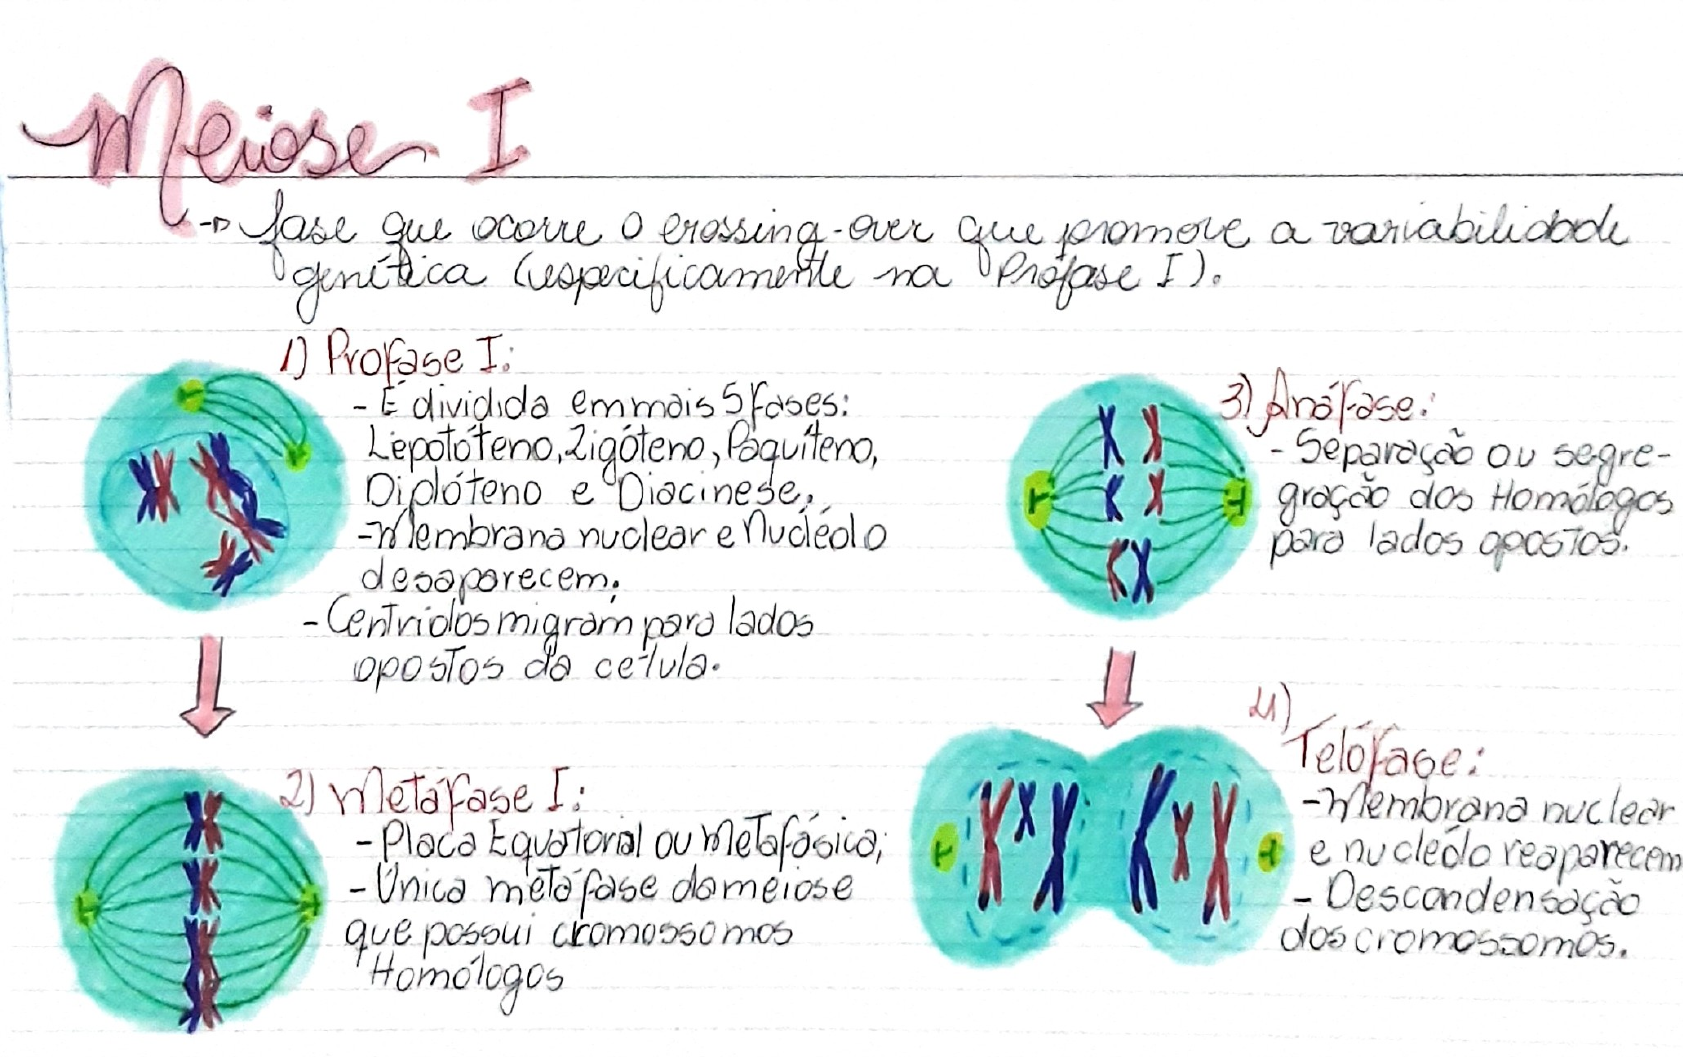 Meiose I
→ fase que ocorre o crossing-over que promove a variabilidade
genética (especificamente na Prófase I).
1) Profase I:
- É dividida em mais 5 fases:
Lepotóteno, Zigóteno, Paquíteno,
Diplóteno e Diacinese.
- Membrana nuclear e Nucléolo
desaparecem.
- Centríolos migram para lados
opostos da célula.
2) Metáfase I:
- Placa Equatorial ou Metafásica;
- Única metáfase da meiose
que possui cromossomos
Homólogos
3) Anáfase:
- Separação ou segre-
gração dos Homólogos
para lados opostos.
4)
Telófase:
- Membrana nuclear
e nucleólo reaparecem
- Descondensação
dos cromossomos.